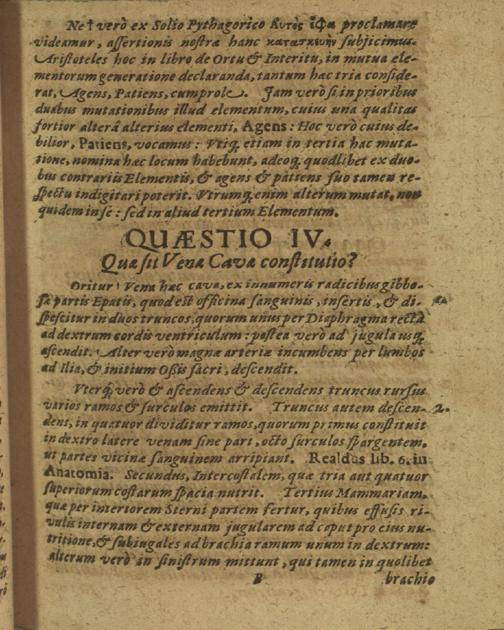 Ne† verò ex Solio Pythagorico Κυτὸς ἔφα proclamare
videamur, assertionis nostræ hanc κατασκευὴν subjicimus.
Aristoteles hoc in libro de Ortu & Interitu, in mutua ele-
mentorum generatione declaranda, tantum hac tria conside-
rat, Agens, Patiens, cum prole. Jam verò si in prioribus
duabus mutationibus illud elementum, cuius una qualitas
fortior alterâ alterius elementi, Agens: Hoc verò cuius de-
bilior, Patiens, vocamus: Vtiq; etiam in tertia hac muta-
tione, nomina hæc locum habebunt, adeoq; quodlibet ex duo-
bus contrariis Elementis, & agens & patiens suo tamen re-
spectu indigitari poterit. Vtrumq; enim alterum mutat, non
quidem in se: sed in aliud tertium Elementum.
QUÆSTIO IV.
Quæ sit Venæ Cavæ constitutio?
Oritur Vena hæc cava, ex innumeris radicibus gibbo-
sæ partis Epatis, quod est officina sanguinis, insertis, & di-
spescitur in duos truncos, quorum unus per Diaphragma rectà
ad dextrum cordis ventriculum: postea verò ad jugula usq;
ascendit. Alter verò magnæ arteriæ incumbens per lumbos
ad Ilia, & initium Ossis sacri, descendit.
Vterq; verò & ascendens & descendens truncus rursus
varios ramos & surculos emittit. Truncus autem descen- 2.
dens, in quatuor dividitur ramos, quorum primus constituit
in dextro latere venam sine pari, octo surculos spargentem,
ut partes vicinæ sanguinem arripiant. Realdus lib. 6. in
Anatomia. Secundus, Intercostalem, quæ tria aut quatuor
superiorum costarum spacia nutrit. Tertius Mammariam,
quæ per interiorem Sterni partem fertur, quibus effusis ri-
vulis internam & externam jugularem ad caput pro eius nu-
tritione, & subiugales ad brachia ramum unum in dextrum:
alterum verò in sinistrum mittunt, qui tamen in quolibet
B brachio